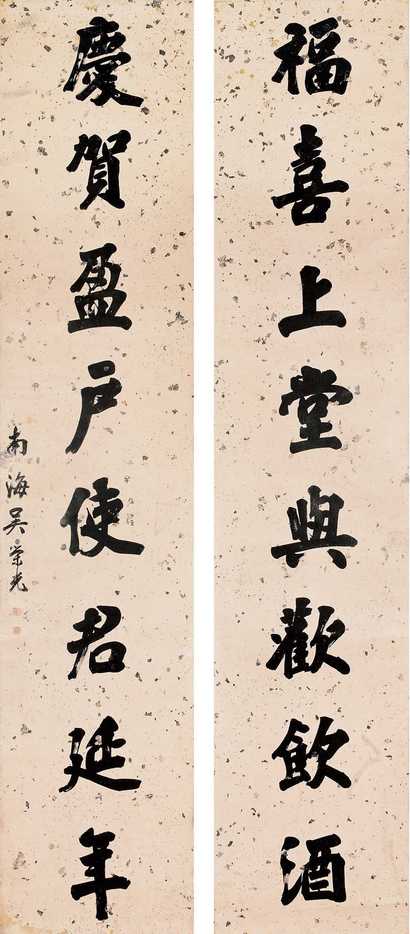 福喜上堂與歡飲酒
慶賀盈戶使君延年
南海吳榮光